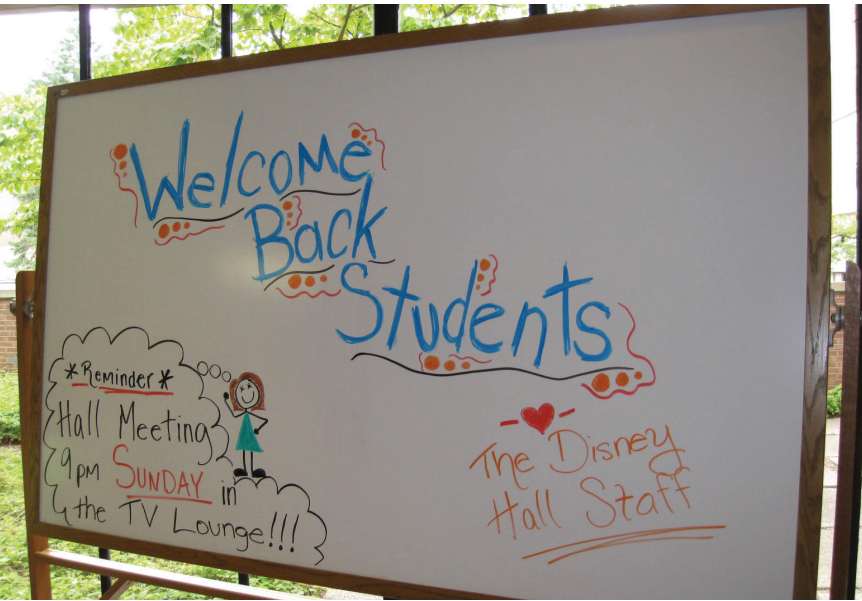 Welcome
Back
Students
*Reminder*
Hall Meeting
9pm SUNDAY in
the TV Lounge!!!
The Disney
Hall Staff